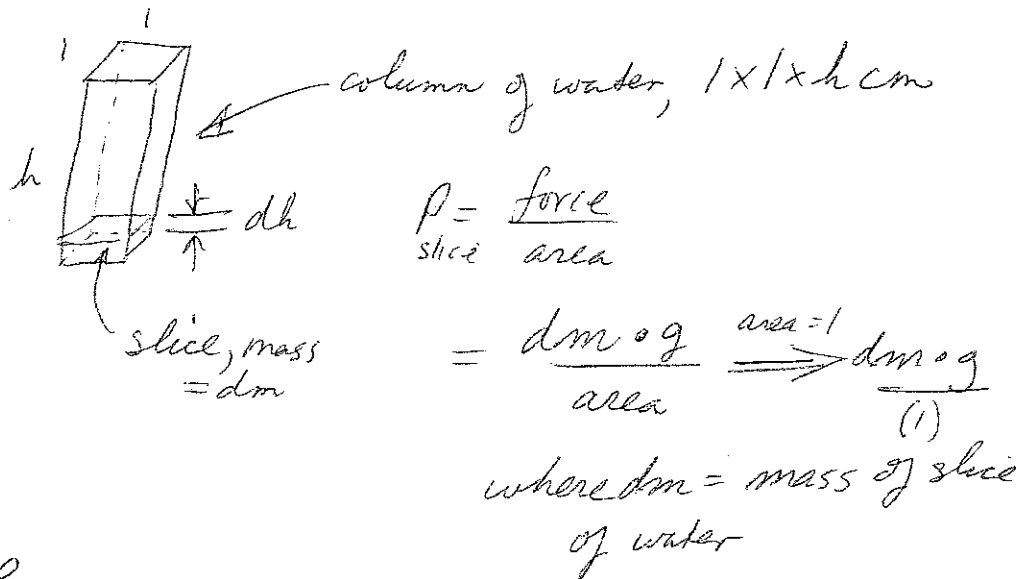 1
1
column of water, 1x1xh cm
h
dh
P slice = force / area
slice, mass = dm
= dm • g / area ⟹ area = 1 dm • g / (1)
where dm = mass of slice
of water